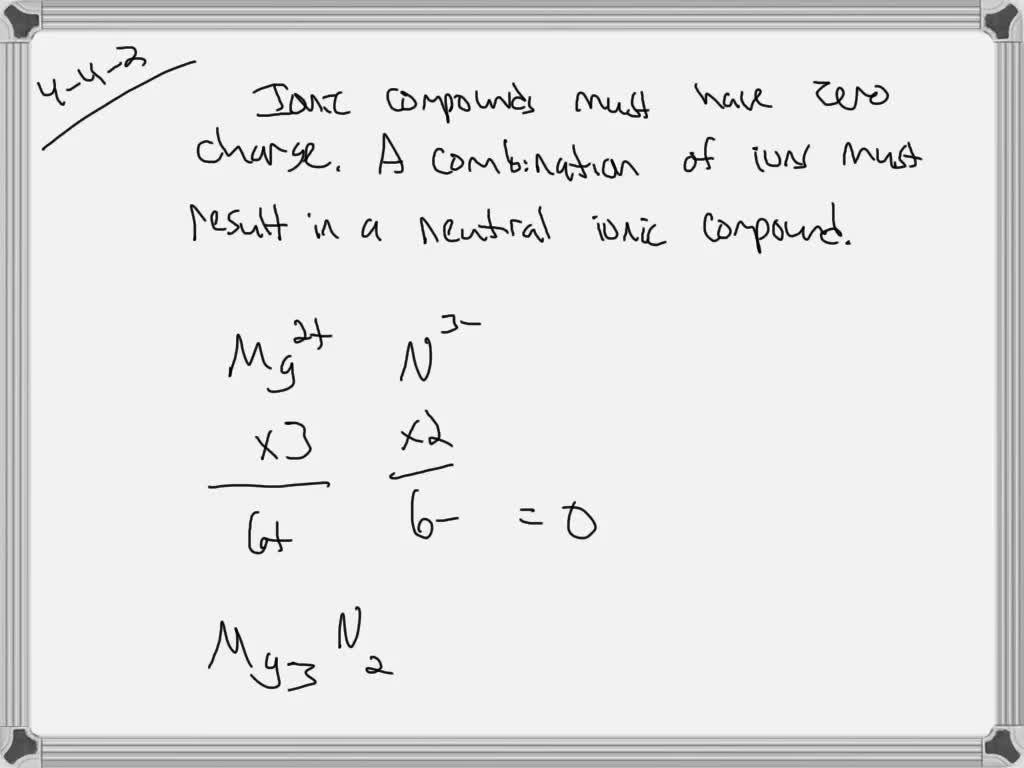 4-4-2
Ionic compounds must have zero
charge. A combination of ions must
result in a neutral ionic compound.
Mg²⁺ N³⁻
x3 x2
6+ 6- = 0
Mg₃ N₂